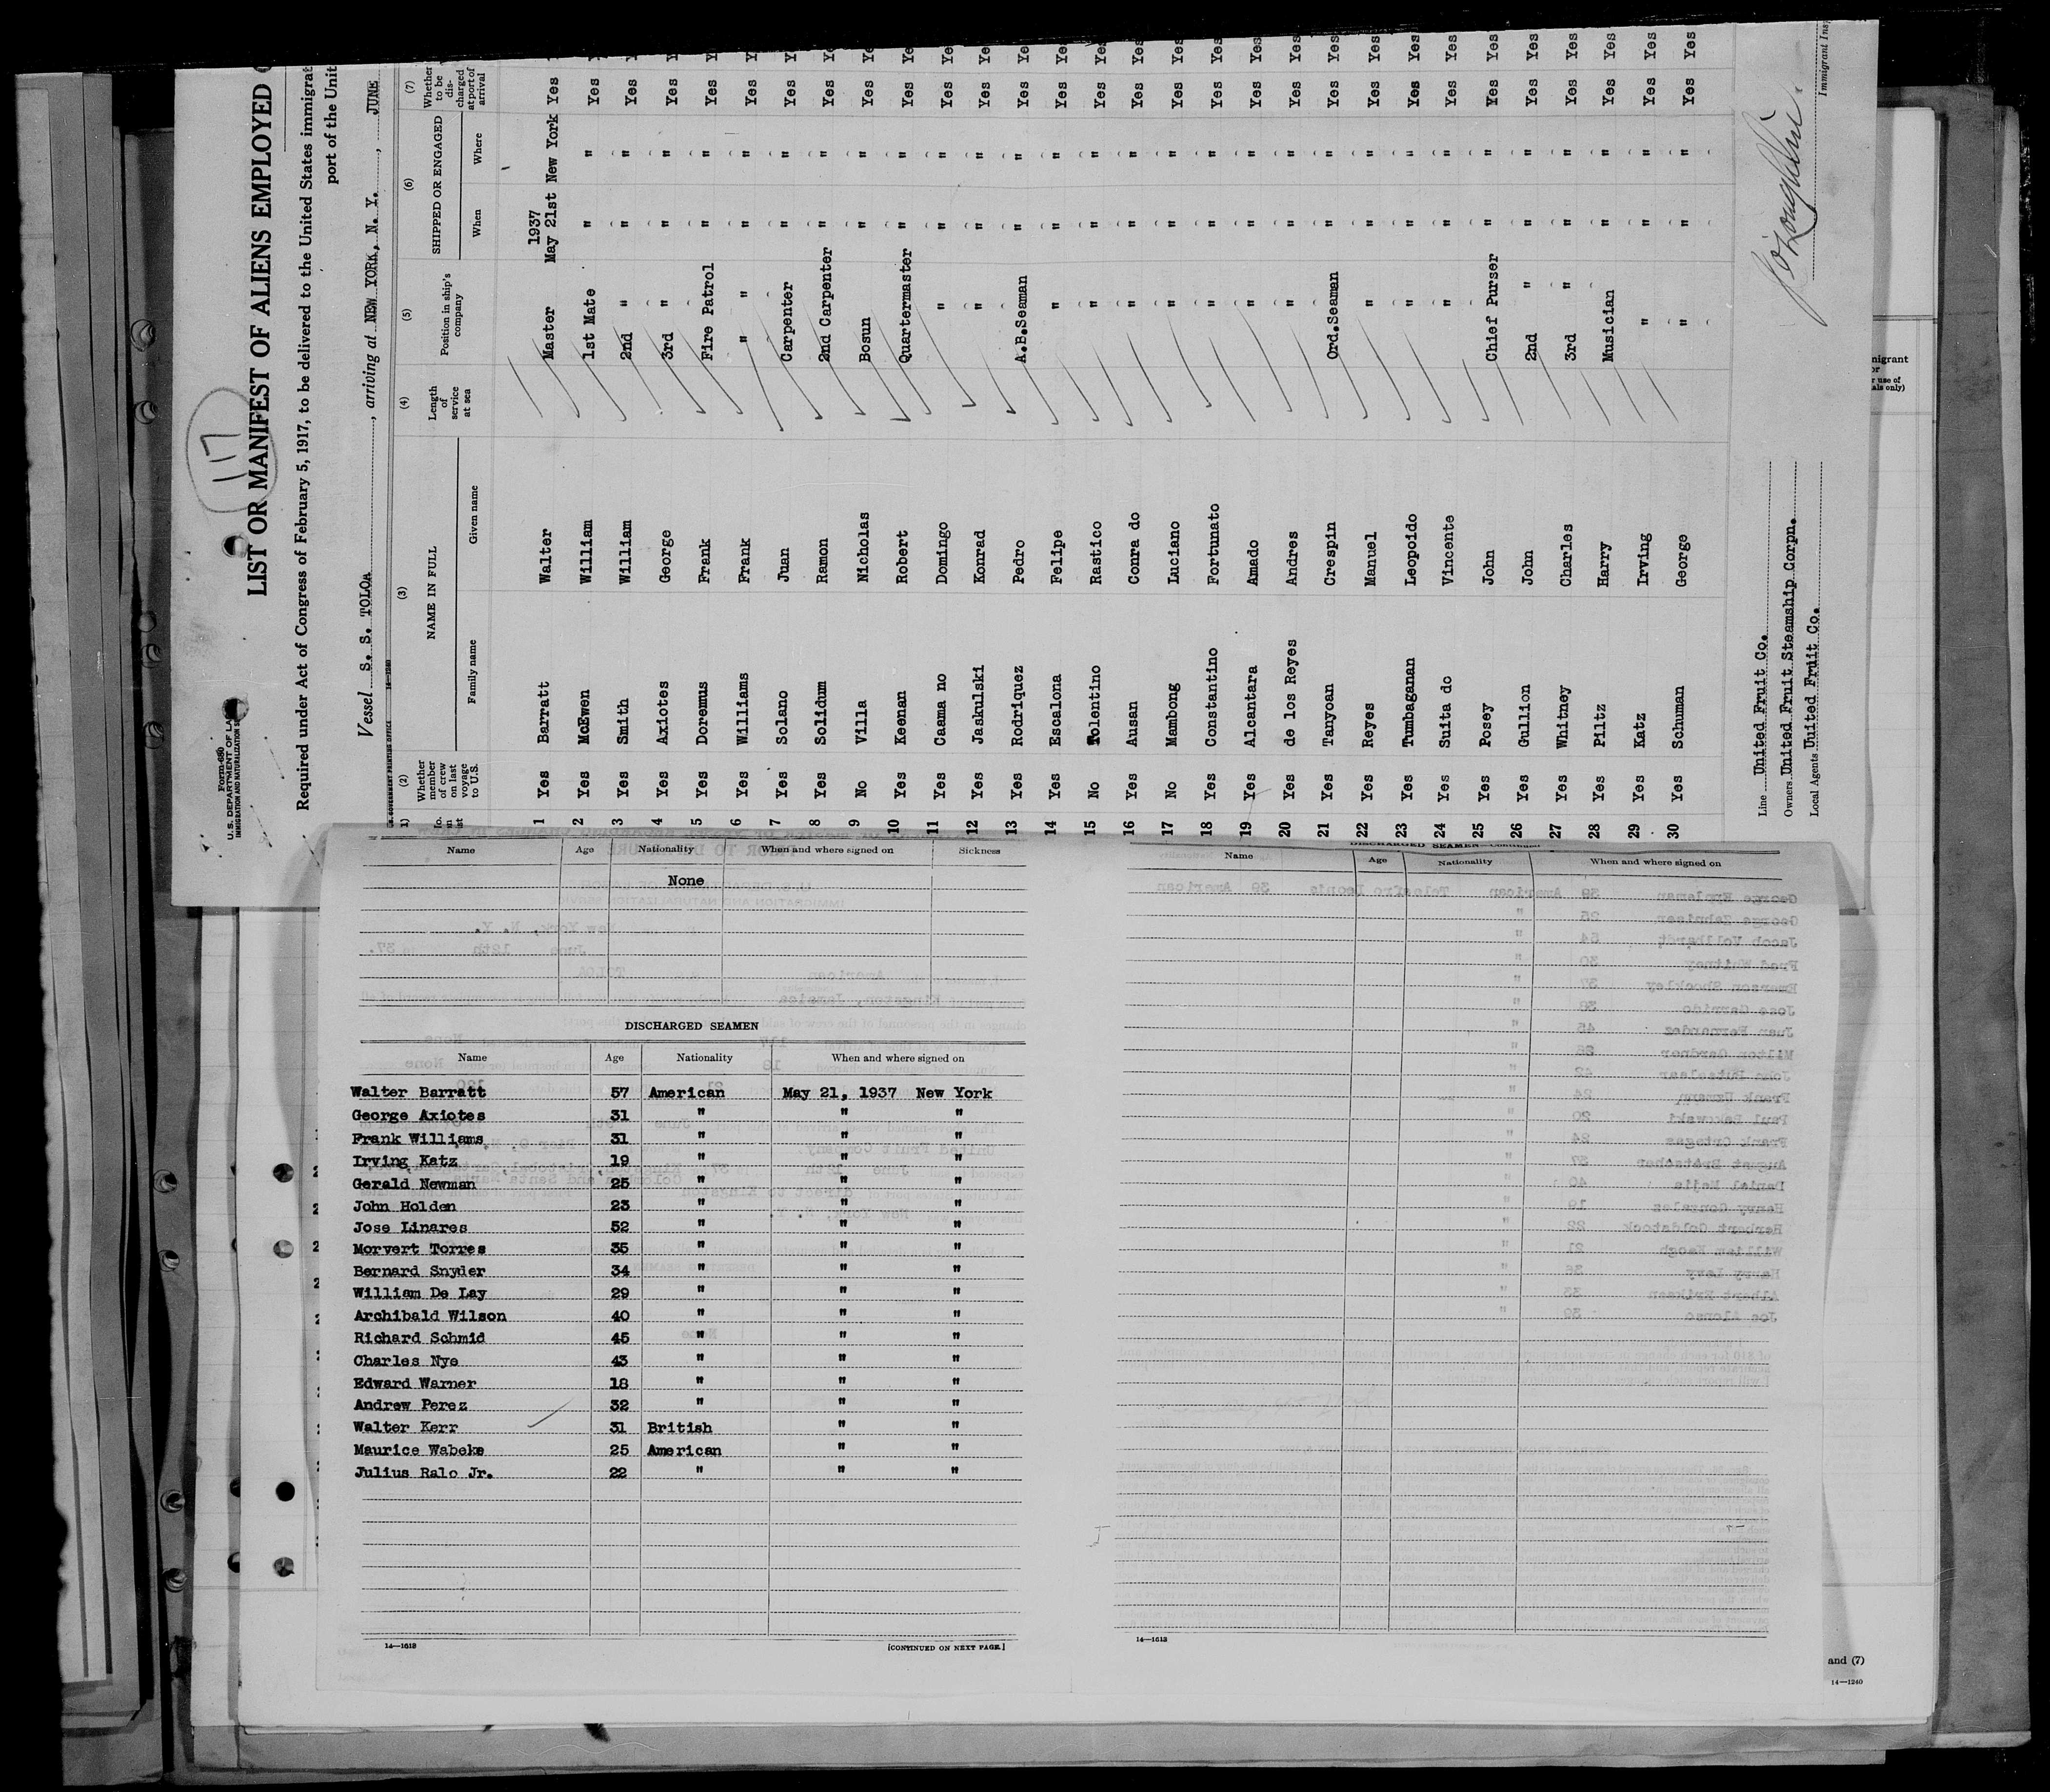 117
Form 680
U. S. DEPARTMENT OF LA
IMMIGRATION AND NATURALIZATION S
LIST OR MANIFEST OF ALIENS EMPLOYED
Required under Act of Congress of February 5, 1917, to be delivered to the United States immigrat
port of the Unit
Vessel S. S. TOLOA, arriving at NEW YORK, N. Y., JUNE
(2) (3) (4) (5) (6) (7)
Whether member of crew on last voyage to U.S. NAME IN FULL Length of service at sea Position in ship's company SHIPPED OR ENGAGED Whether to be discharged at port of arrival
Family name Given name When Where
1937
1 Yes Barratt Walter Master May 21st New York Yes
2 Yes McEwen William 1st Mate " " Yes Yes
3 Yes Smith William 2nd " " " Yes
4 Yes Axiotes George 3rd " " " Yes
5 Yes Doremus Frank Fire Patrol " " Yes
6 Yes Williams Frank " " " " Yes
7 Yes Solano Juan Carpenter " " Yes
8 Yes Solidum Ramon 2nd Carpenter " " Yes
9 No Villa Nicholas Bosun " " Yes
10 Yes Keenan Robert Quartermaster " " Yes
11 Yes Caama no Domingo " " " Yes
12 Yes Jaskulski Konrad " " " Yes
13 Yes Rodriquez Pedro A.B.Seaman " " Yes
14 Yes Escalona Felipe " " " Yes
15 No Tolentino Rastico " " " Yes
16 Yes Ausan Conra do " " " Yes
17 No Mambong Luciano " " " Yes
18 Yes Constantino Fortunato " " " Yes
19 Yes Alcantara Amado " " " Yes
20 Yes de los Reyes Andres " " " Yes
21 Yes Tanyoan Crespin Ord.Seaman " " Yes
22 Yes Reyes Manuel " " " Yes Yes
23 Yes Tumbaganan Leopoido " " " Yes Yes
24 Yes Suita do Vincente " " " Yes Yes
25 Yes Posey John Chief Purser " " Yes Yes
26 Yes Gullion John 2nd " " " Yes Yes
27 Yes Whitney Charles 3rd " " " Yes Yes
28 Yes Piltz Harry Musician " " Yes Yes
29 Yes Katz Irving " " " Yes Yes
30 Yes Schuman George " " " Yes Yes
Line United Fruit Co.
Owners United Fruit Steamship Corpn.
Local Agents United Fruit Co.
Immigrant Ins
Name Age Nationality When and where signed on Sickness
None
DISCHARGED SEAMEN
Name Age Nationality When and where signed on
Walter Barratt 57 American May 21, 1937 New York
George Axiotes 31 " " "
Frank Williams 31 " " "
Irving Katz 19 " " "
Gerald Newman 25 " " "
John Holden 23 " " "
Jose Linares 52 " " "
Morvert Torres 35 " " "
Bernard Snyder 34 " " "
William De Lay 29 " " "
Archibald Wilson 40 " " "
Richard Schmid 45 " " "
Charles Nye 43 " " "
Edward Warner 18 " " "
Andrew Perez 32 " " "
Walter Kerr 31 British " "
Maurice Wabeke 25 American " "
Julius Ralo Jr. 22 " " "
14—1613 [CONTINUED ON NEXT PAGE.]
DISCHARGED SEAMEN—Continued
Name Age Nationality When and where signed on
14—1613
and (7)
14—1240